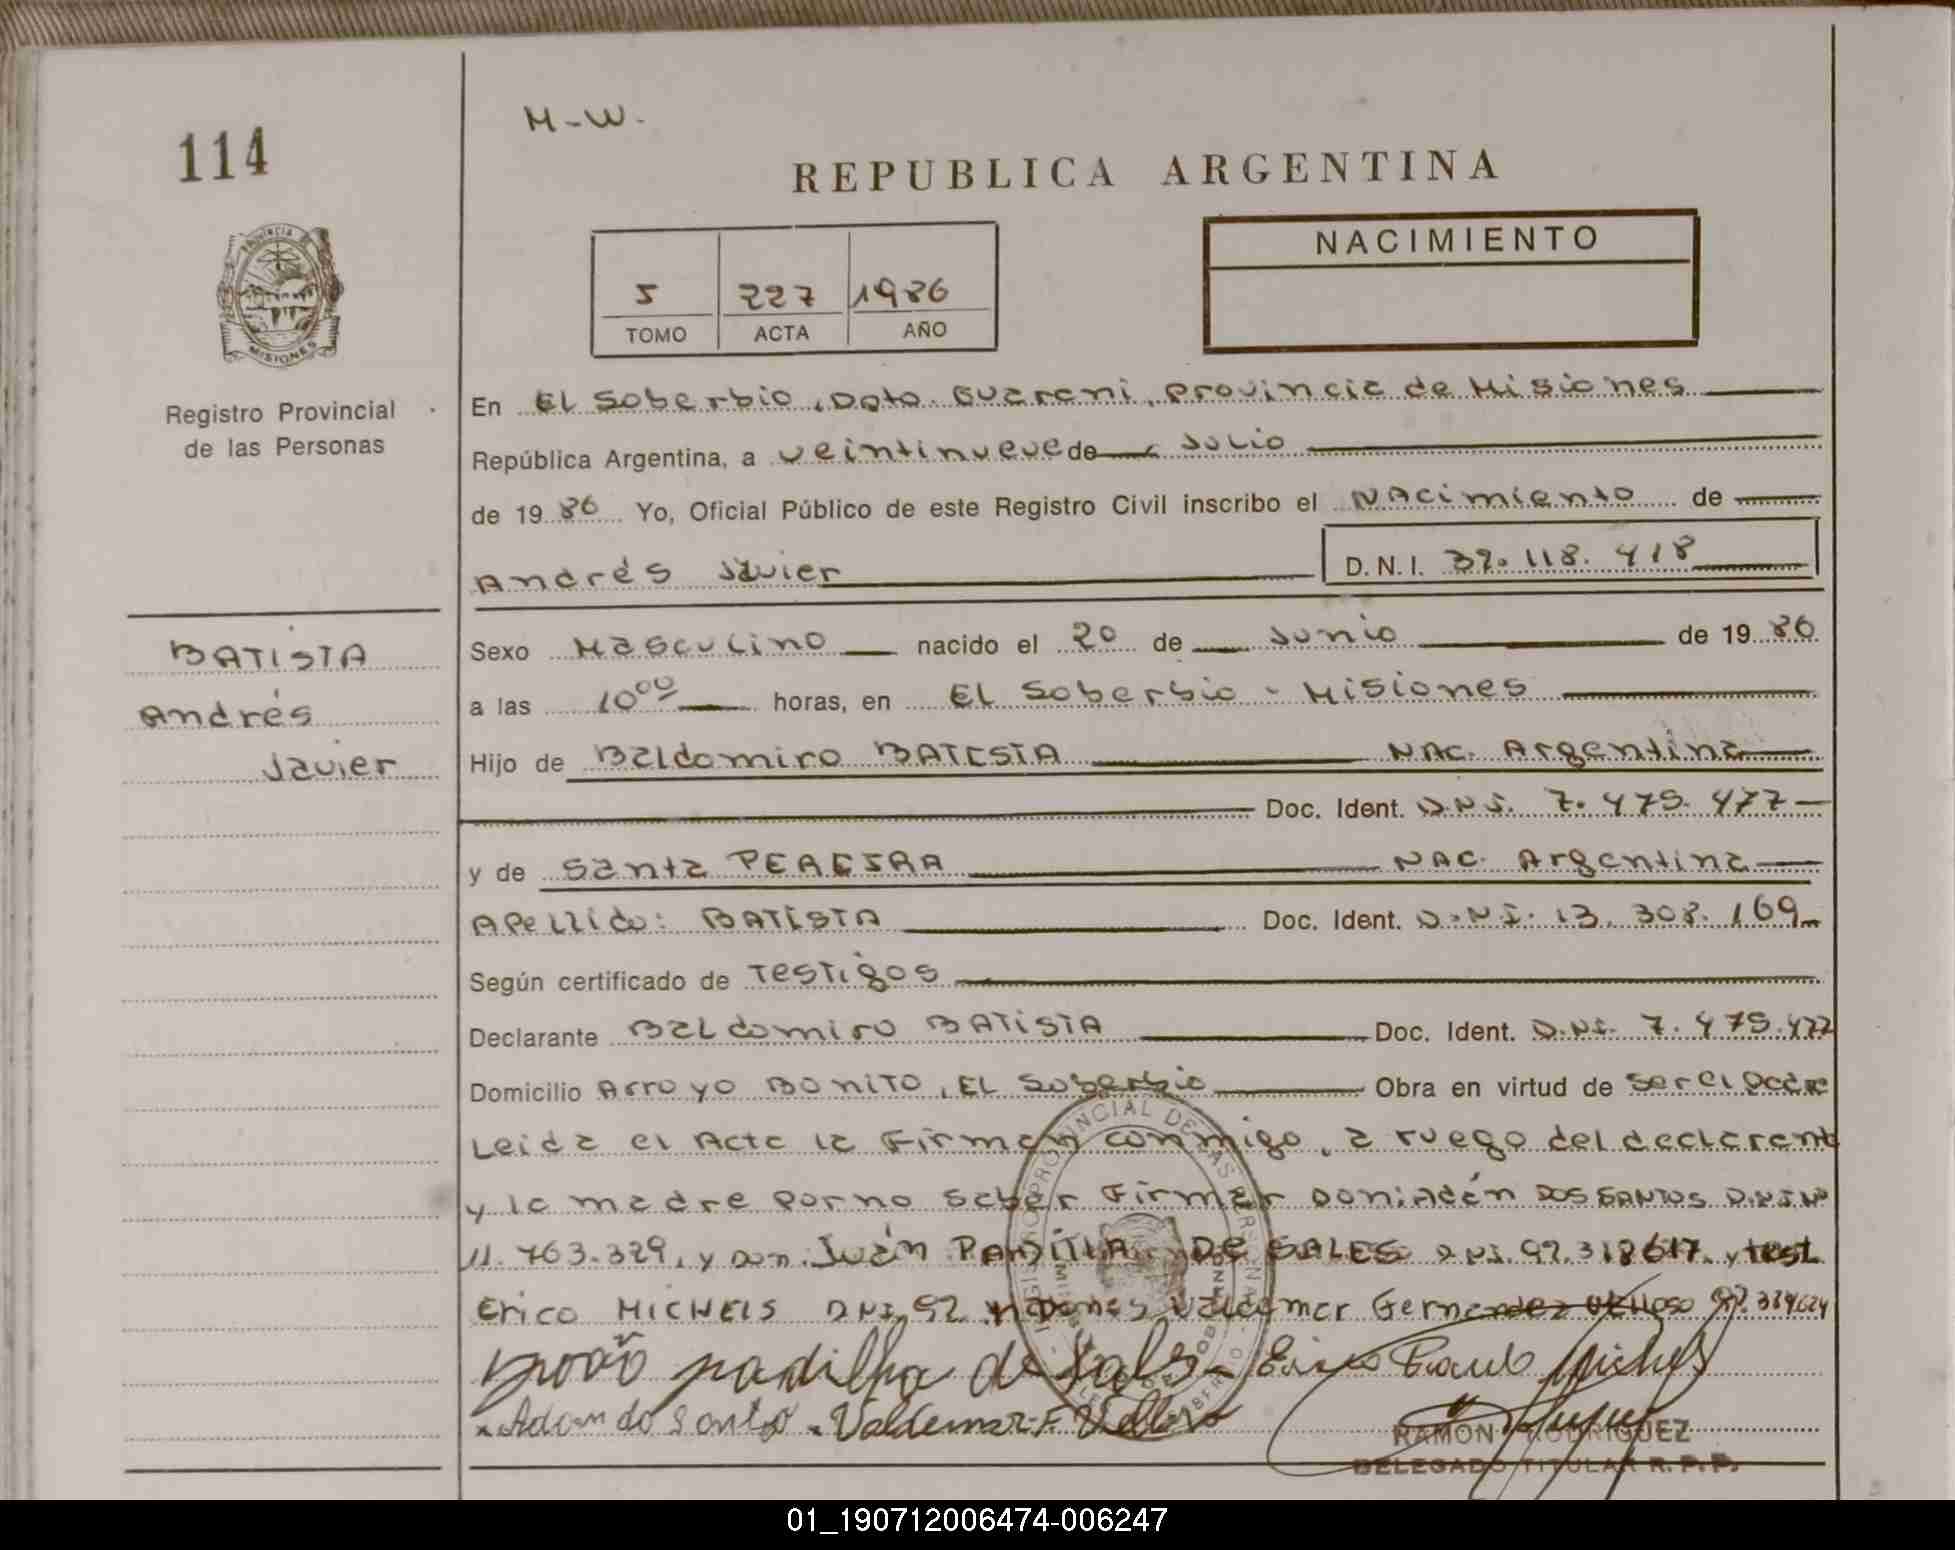 114
M-W.
REPUBLICA ARGENTINA
PROVINCIA
MISIONES
5 227 1986
TOMO ACTA AÑO
NACIMIENTO
Registro Provincial
de las Personas
En El Soberbio, Dpto. Guarani, Provincia de Misiones
República Argentina, a veintinueve de Julio
de 1986 Yo, Oficial Público de este Registro Civil inscribo el Nacimiento de
Andrés Javier D.N.I. 32.118.418
BATISTA
Andrés
Javier
Sexo Masculino nacido el 20 de Junio de 1986
a las 10⁰⁰ horas, en El Soberbio - Misiones
Hijo de Baldomiro BATISTA NAC. Argentina
Doc. Ident. D.N.I. 7.475.477
y de Santa PEREIRA NAC. Argentina
Apellido: BATISTA Doc. Ident. D.N.I. 13.308.169
Según certificado de Testigos
Declarante Baldomiro BATISTA Doc. Ident. D.N.I. 7.475.477
Domicilio Arroyo Bonito, El Soberbio Obra en virtud de ser el Padre
Leida el Acta la Firman conmigo, a ruego del declarante
y la madre por no saber Firmar Don: Adán DOS SANTOS D.N.I. Nº
11.763.329, y Don: Juán PADILLA DE SALES D.N.I. 92.318617, y test
Erico MICHELS D.N.I. 92. Valdemar Fernandez Velloso 92.324624
João padilha de Sales Erico Michels
Adan do Santo Valdemar F. Velloso
RAMON RODRIGUEZ
DELEGADO TITULAR R.P.P.
01_190712006474-006247